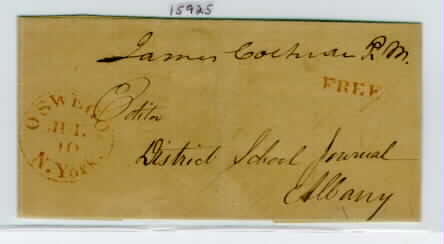 15925
James Cochran P.M.
FREE
OSWEGO
JUL
10
N.York.
Editor
District School Journal
Albany